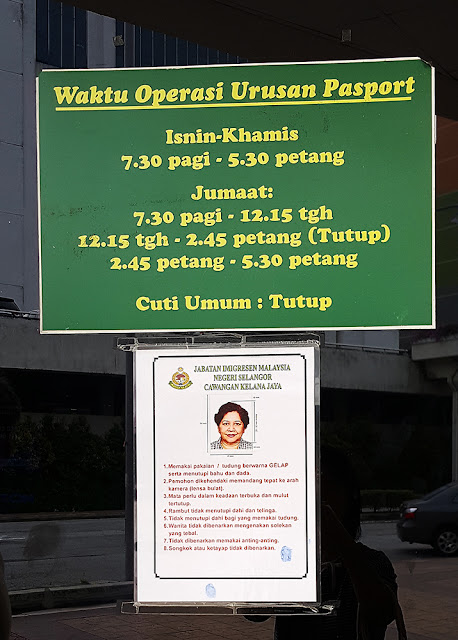 Waktu Operasi Urusan Pasport
Isnin-Khamis
7.30 pagi - 5.30 petang
Jumaat:
7.30 pagi - 12.15 tgh
12.15 tgh - 2.45 petang (Tutup)
2.45 petang - 5.30 petang
Cuti Umum : Tutup
JABATAN IMIGRESEN MALAYSIA
NEGERI SELANGOR
CAWANGAN KELANA JAYA
1. Memakai pakaian / tudung berwarna GELAP
serta menutupi bahu dan dada.
2. Pemohon dikehendaki memandang tepat ke arah
kamera (lensa bulat).
3. Mata perlu dalam keadaan terbuka dan mulut
tertutup.
4. Rambut tidak menutupi dahi dan telinga.
5. Tidak menutupi dahi bagi yang memakai tudung.
6. Wanita tidak dibenarkan mengenakan solekan
yang tebal.
7. Tidak dibenarkan memakai anting-anting.
8. Songkok atau ketayap tidak dibenarkan.